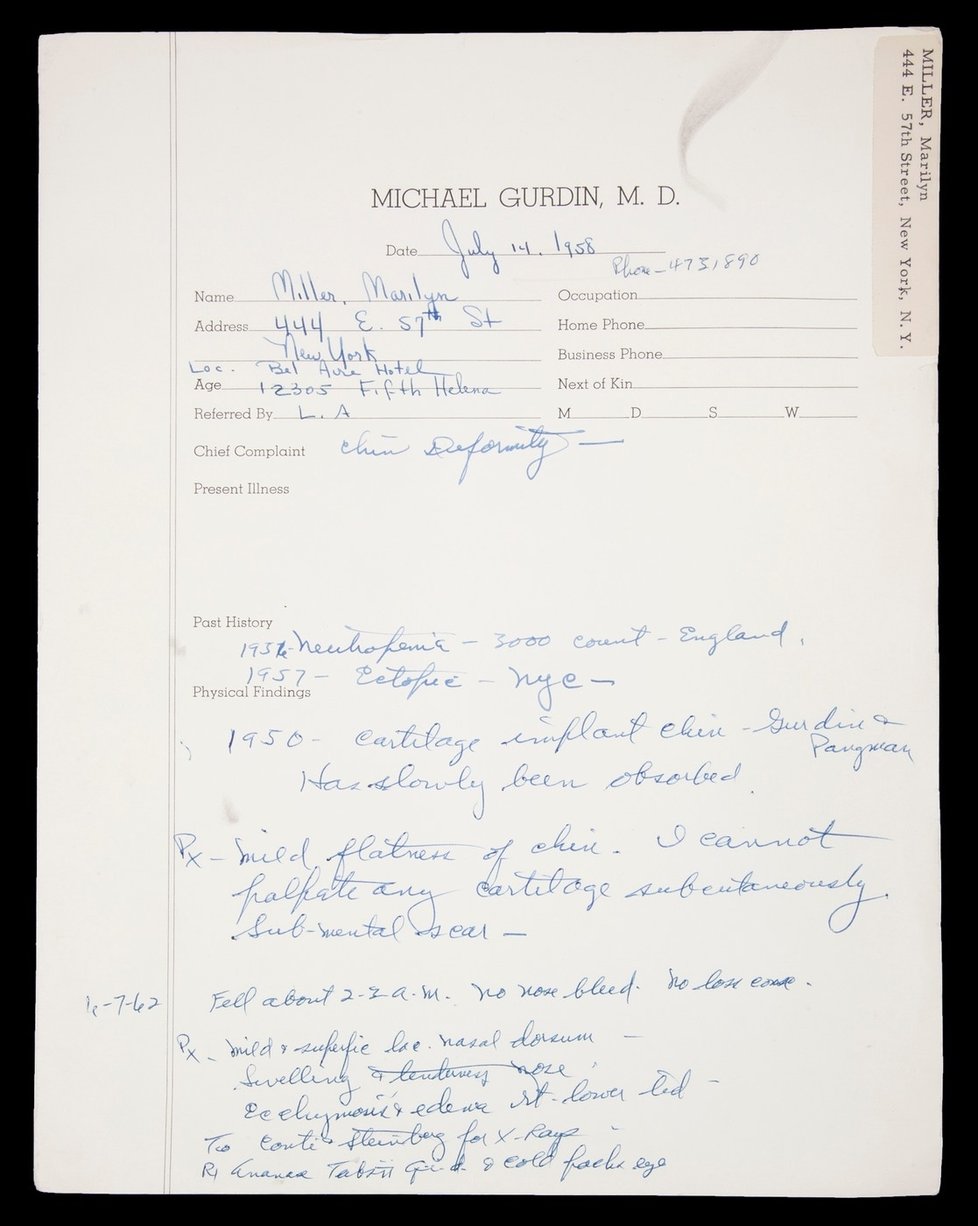 MILLER, Marilyn
444 E. 57th Street, New York, N. Y.
MICHAEL GURDIN, M. D.
Date July 14. 1958
Phone-4731890
Name Miller, Marilyn Occupation
Address 444 E. 57th St Home Phone
New York Business Phone
Loc. Bel Aire Hotel
Age 12305 Fifth Helena Next of Kin
Referred By L. A M D S W
Chief Complaint chin Deformity —
Present Illness
Past History
Neutropenia - 3000 count - England.
1957 - Ectopic - NYC -
Physical Findings
1950 - cartilage implant chin - Gurdin &
Pangman
Has slowly been absorbed.
Px - mild flatness of chin. I cannot
palpate any cartilage subcutaneously.
Sub-mental scar -
6-7-62 Fell about 2-2 a.m. No nose bleed. No loss consc.
Px - mild & superfic lac. nasal dorsum -
Swelling & tenderness nose
Ecchymosis & edema rt. lower lid -
To Conti & Steinberg for X-Rays -
Rx Ananase Tabs ii q.i.d. & cold packs eye